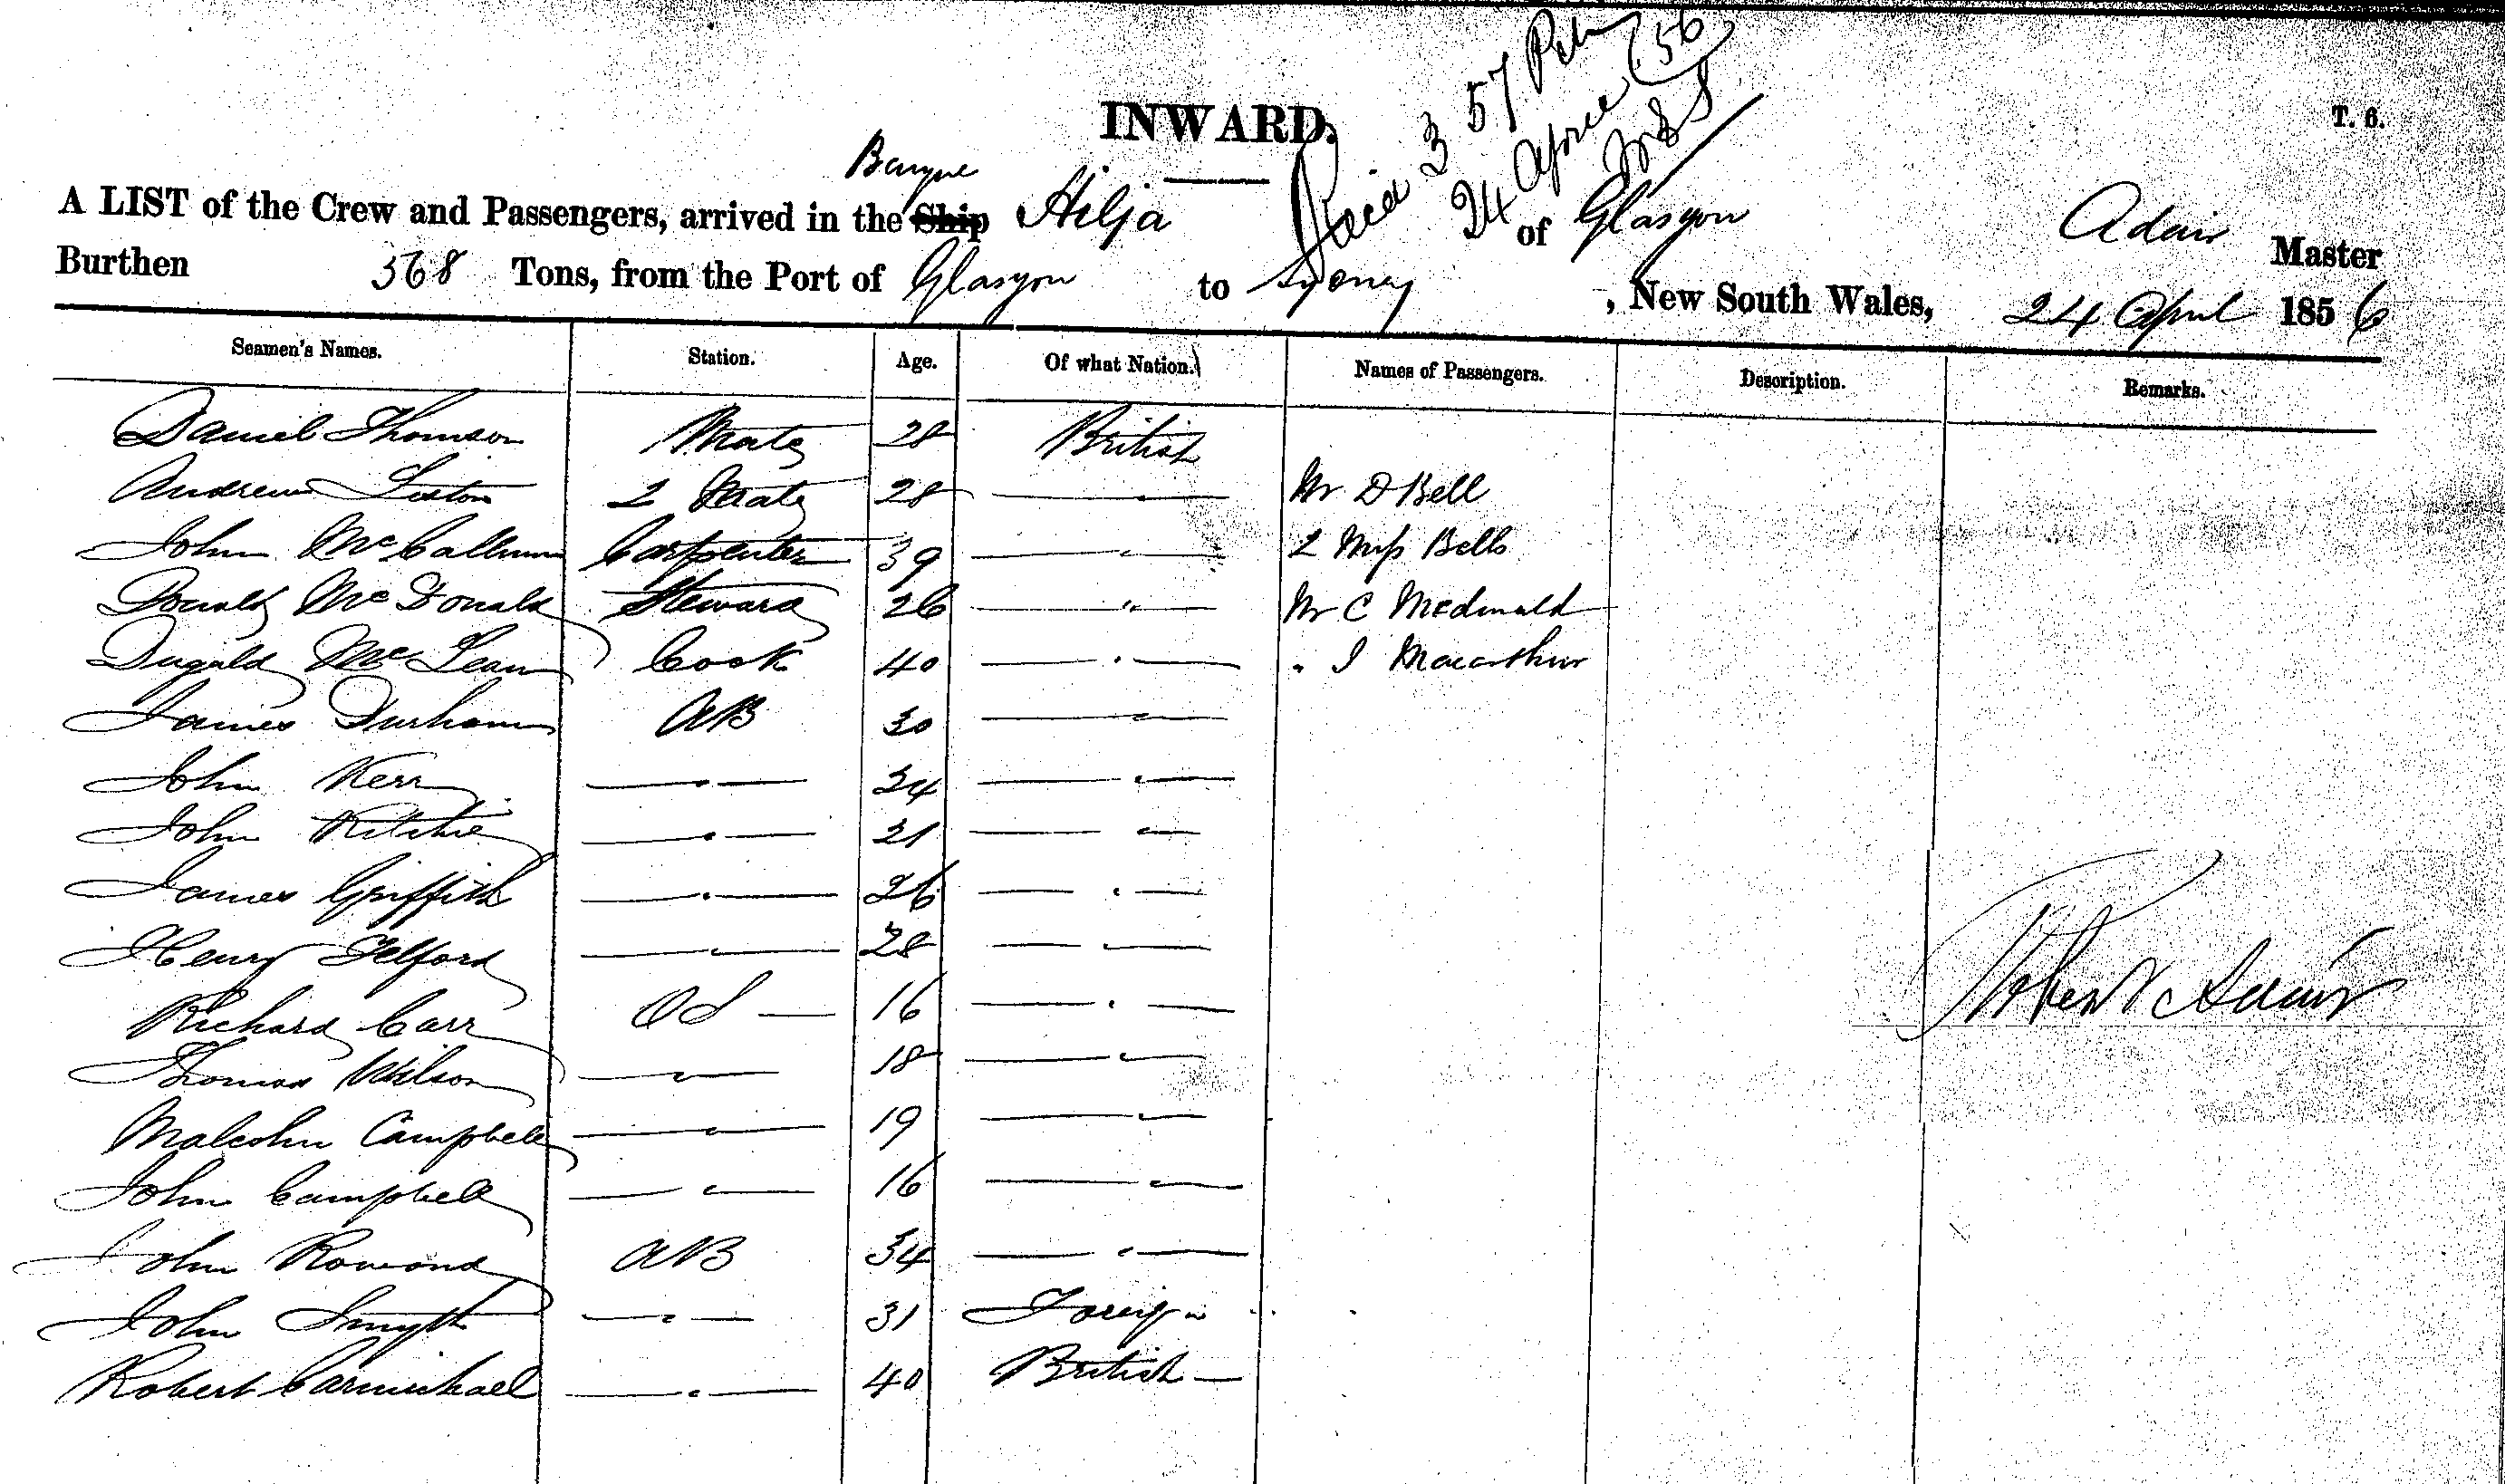 INWARD.
T. 6.
24 April 56
Barque
A LIST of the Crew and Passengers, arrived in the Ship Hilja of Glasgow Adair Master
Burthen 368 Tons, from the Port of Glasgow to Sydney, New South Wales, 24 April 1856
Seamen's Names. Station. Age. Of what Nation. Names of Passengers. Description. Remarks.
Daniel Thomson Mate 28 British
Andrew 2 Mate 28 — " — Mr D Bell
John McCallum Carpenter 39 — " — 2 Miss Bells
Donald McDonald Steward 26 — " — Mr C Mcdonald
Dugald McLean Cook 40 — " — " J Macarthur
James Durham AB 30 — " —
John Kerr — " — 24 — " —
John Ritchie — " — 21 — " —
James Griffith — " — 26 — " —
Henry Telford — " — 28 — " —
Richard Carr OS — 16 — " —
Thomas Wilson — " — 18 — " —
Malcolm Campbell — " — 19 — " —
John Campbell — " — 16 — " —
John Rowond AB 34 — " —
John Smyth — " — 31 Foreign
Robert Carmichael — " — 40 British —
Robert Adair